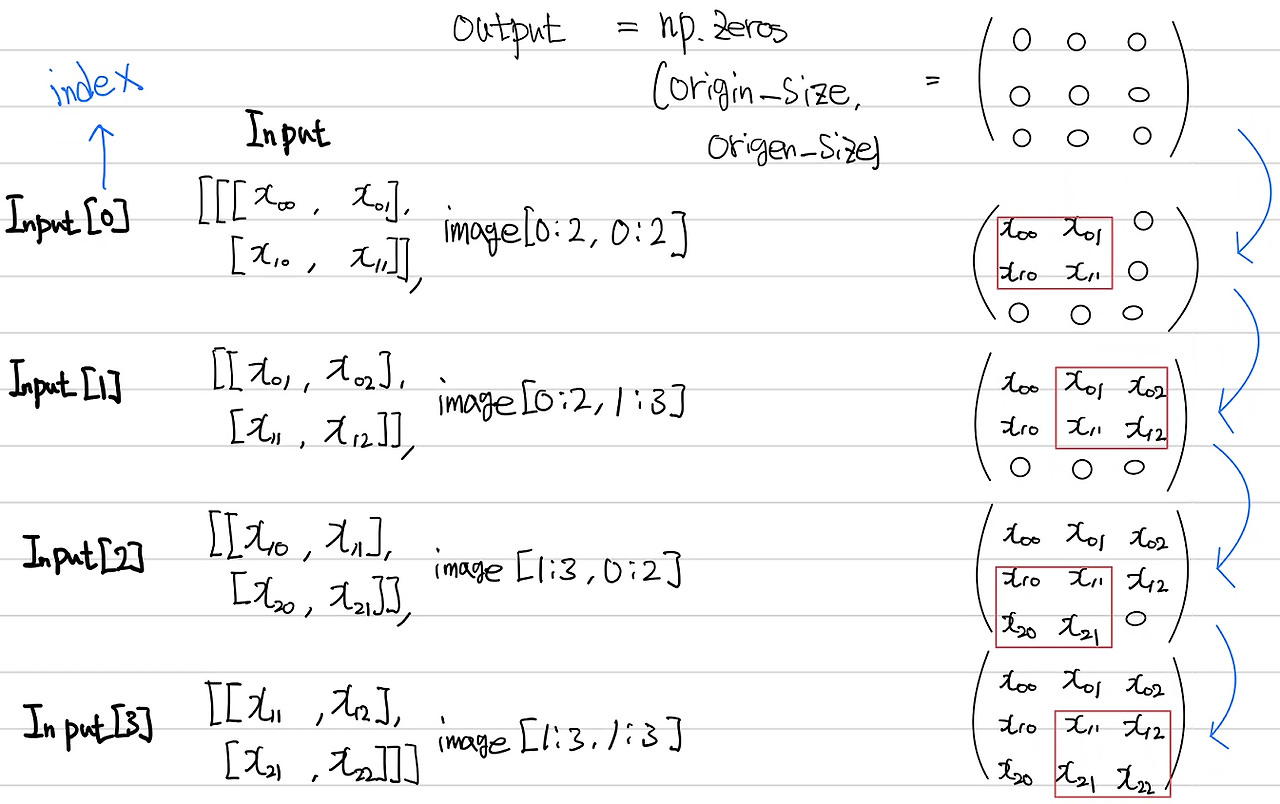 output = np.zeros
(origin_size,
origen_size) = ( 0 0 0
0 0 0
0 0 0 )
index
Input
Input[0] [[[x₀₀ , x₀₁], image[0:2, 0:2]
[x₁₀ , x₁₁]],
( x₀₀ x₀₁ 0
x₁₀ x₁₁ 0
0 0 0 )
Input[1] [[x₀₁ , x₀₂], image[0:2, 1:3]
[x₁₁ , x₁₂]],
( x₀₀ x₀₁ x₀₂
x₁₀ x₁₁ x₁₂
0 0 0 )
Input[2] [[x₁₀ , x₁₁], image [1:3, 0:2]
[x₂₀ , x₂₁]],
( x₀₀ x₀₁ x₀₂
x₁₀ x₁₁ x₁₂
x₂₀ x₂₁ 0 )
Input[3] [[x₁₁ , x₁₂], image [1:3, 1:3]
[x₂₁ , x₂₂]]]
( x₀₀ x₀₁ x₀₂
x₁₀ x₁₁ x₁₂
x₂₀ x₂₁ x₂₂ )